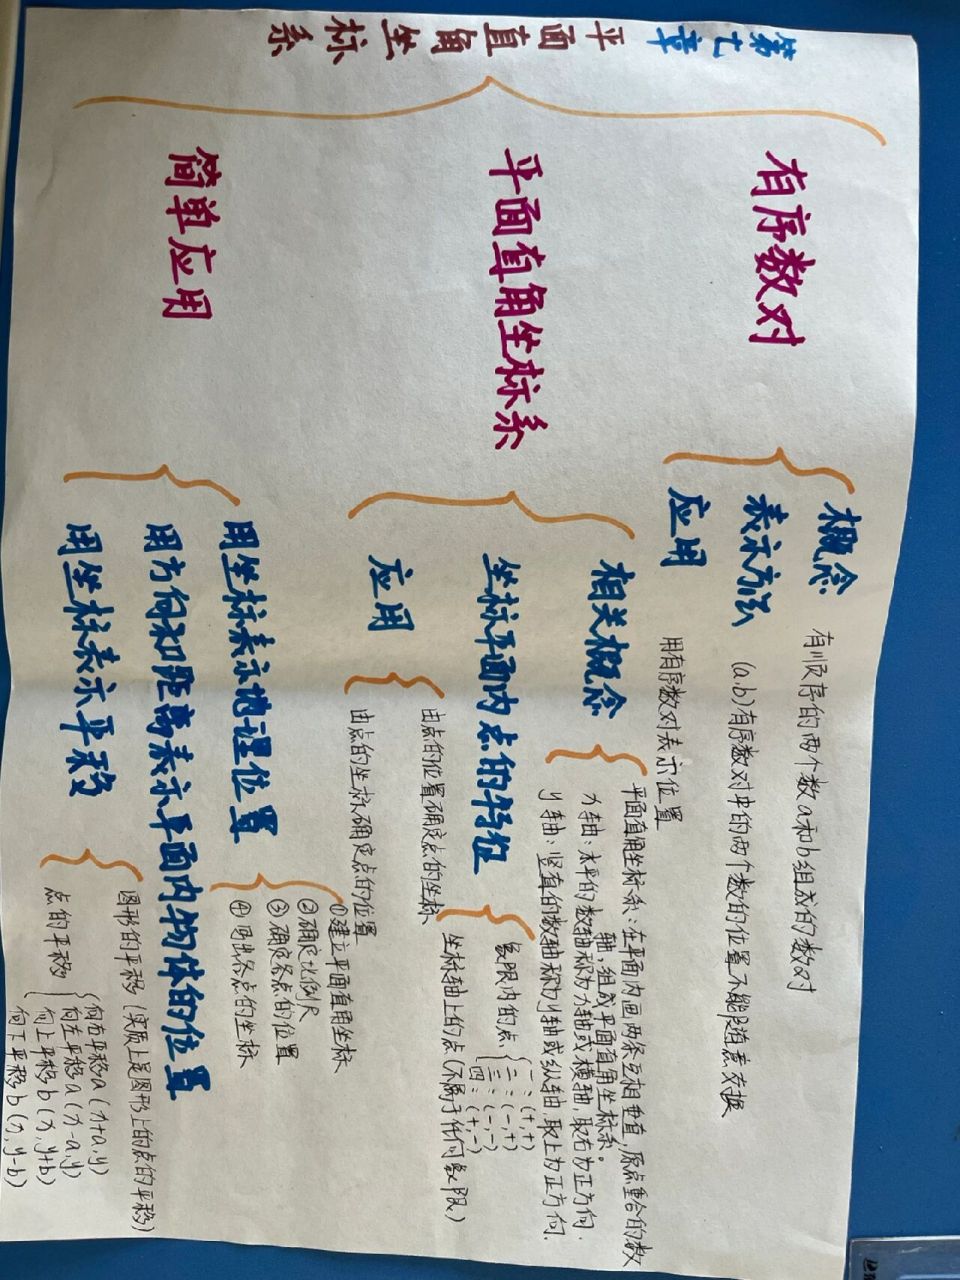 第七章 平面直角坐标系
有序数对
概念
有顺序的两个数a和b组成的数对
表示方法
(a,b)有序数对中的两个数的位置不能随意交换
应用
用有序数对表示位置
平面直角坐标系
相关概念
平面直角坐标系：在平面内画两条互相垂直，原点重合的数
轴，组成平面直角坐标系。
x轴：水平的数轴称为x轴或横轴，取右为正方向．
y轴：竖直的数轴称为y轴或纵轴，取上为正方向．
坐标平面内点的特征
象限内的点
一：(+,+)
二：(-,+)
三：(-,-)
四：(+,-)
坐标轴上的点(不属于任何象限)
应用
由点的位置确定点的坐标
由点的坐标确定点的位置
简单应用
用坐标表示地理位置
①建立平面直角坐标
②确定比例尺
③确定各点的位置
④写出各点的坐标
用方向和距离表示平面内物体的位置
用坐标表示平移
图形的平移(实质上是图形上的点的平移)
点的平移
向右平移a(x+a,y)
向左平移a(x-a,y)
向上平移b(x,y+b)
向下平移b(x,y-b)